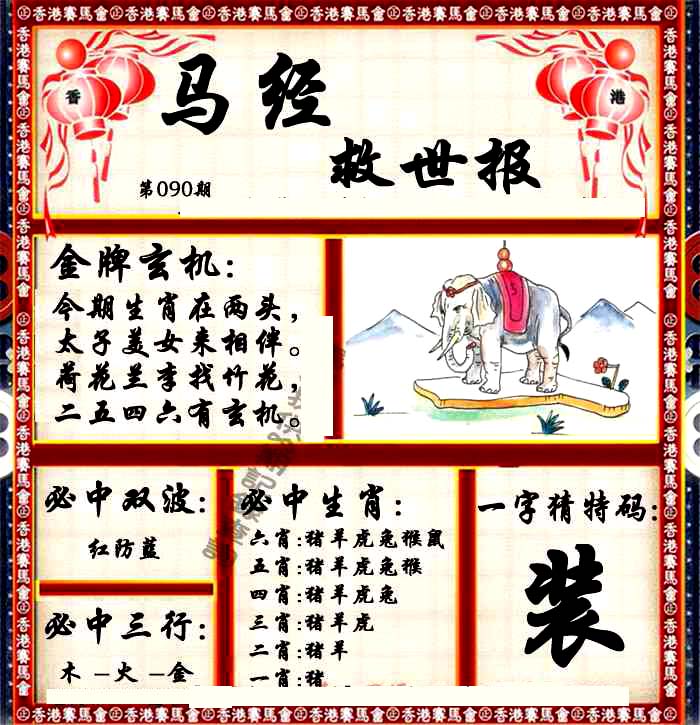 香港賽馬會
香
港
马经
救世报
第090期
金牌玄机:
今期生肖在两头,
太子美女来相伴。
荷花兰李找竹花,
二五四六有玄机。
必中双波:
红防蓝
必中三行:
木-火-金
必中生肖:
六肖:猪羊虎兔猴鼠
五肖:猪羊虎兔猴
四肖:猪羊虎兔
三肖:猪羊虎
二肖:猪羊
一肖:猪
一字猜特码:
装